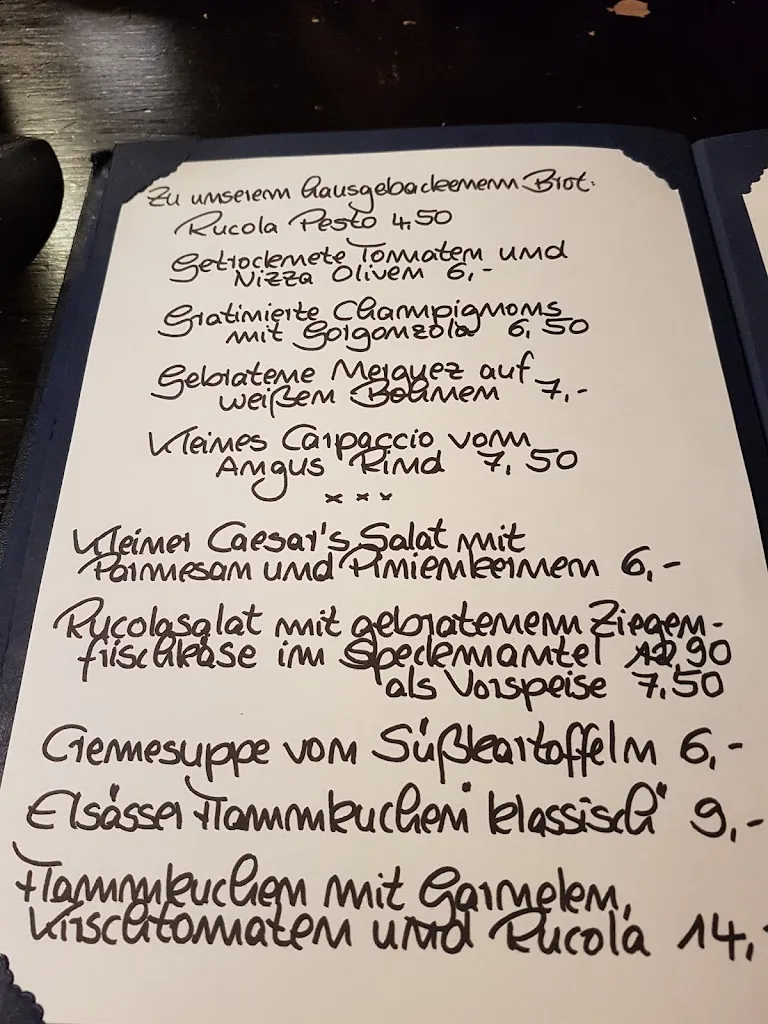 Zu unserem hausgebackenem Brot:
Rucola Pesto 4,50
Getrocknete Tomaten und
Nizza Oliven 6,-
Gratinierte Champignons
mit Gorgonzola 6,50
Gebratene Merguez auf
weißen Bohnen 7,-
Kleines Carpaccio vom
Angus Rind 7,50
x x x
Kleiner Caesar's Salat mit
Parmesan und Pinienkernen 6,-
Rucolasalat mit gebratenem Ziegen-
frischkäse im Speckmantel 12,90
als Vorspeise 7,50
Cremesuppe von Süßkartoffeln 6,-
Elsässer Flammkuchen "klassisch" 9,-
Flammkuchen mit Garnelen,
Kirschtomaten und Rucola 14,